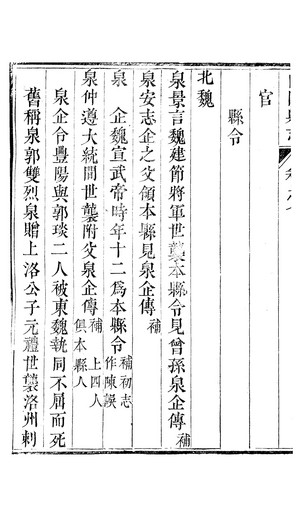 官
縣令
北魏
泉景言魏建節將軍世襲本縣令見曾孫泉企傳補
泉安志企之父領本縣見泉企傳補
泉 企魏宣武帝時年十二為本縣令補初志作陳誤
泉仲遵大統間世襲附父泉企傳補上四人俱本縣人
泉企令豐陽與郭琰二人被東魏執同不屈而死
舊稱泉郭雙烈泉贈上洛公子元禮世襲洛州刺